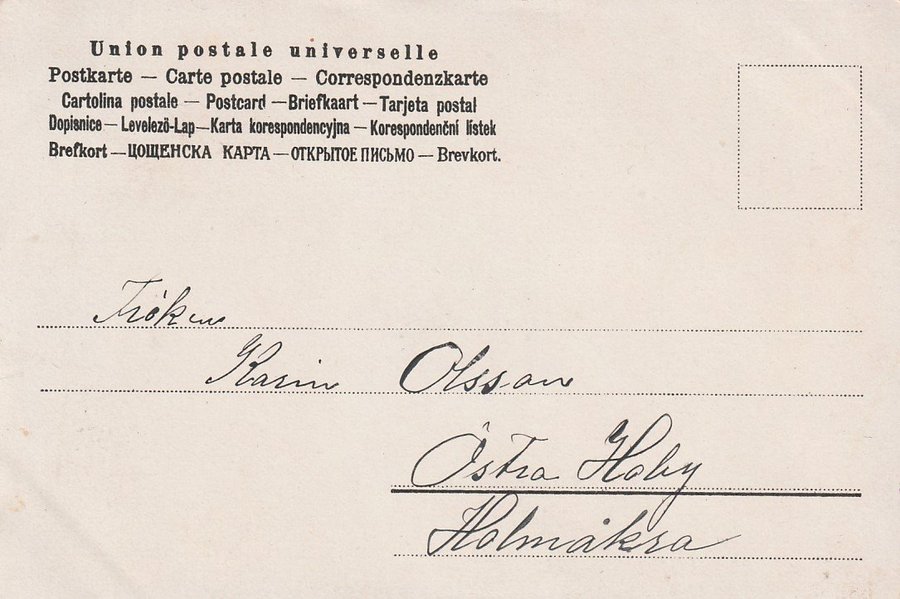 Union postale universelle
Postkarte — Carte postale — Correspondenzkarte
Cartolina postale — Postcard — Briefkaart — Tarjeta postal
Dopisnice — Levelezö-Lap — Karta korespondencyjna — Korespondenční lístek
Brefkort — ЦОЩЕНСКА КАРТА — ОТКРЫТОЕ ПИСЬМО — Brevkort.
Fröken
Karin Olsson
Östra Hoby
Holmåkra